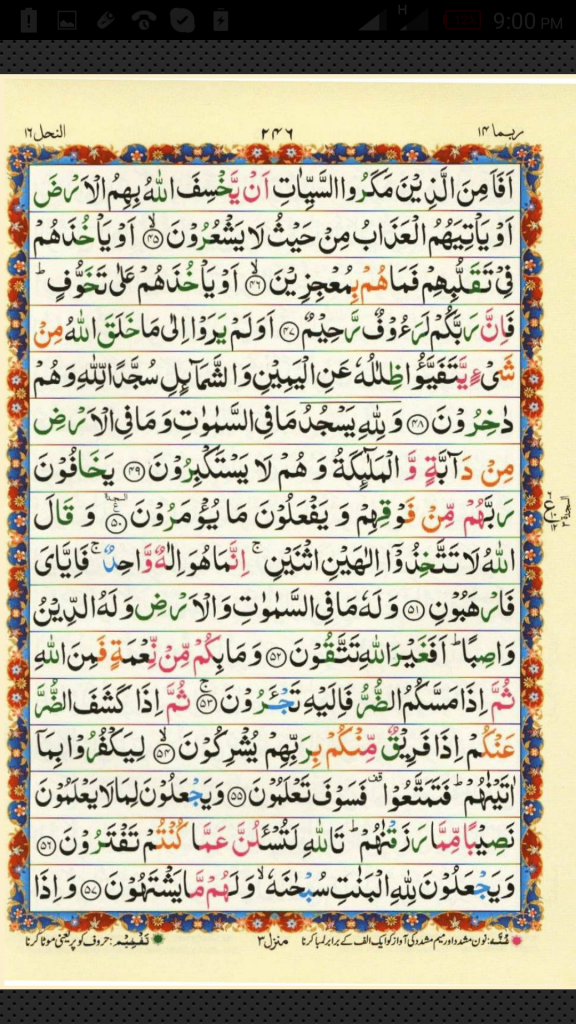 H 12% 9:00 PM
النحل ۱۶ ۲۴۶ ربما ۱۴
اَفَاَمِنَ الَّذِيْنَ مَكَرُوا السَّيِّاٰتِ اَنْ يَّخْسِفَ اللّٰهُ بِهِمُ الْاَرْضَ
اَوْ يَاْتِيَهُمُ الْعَذَابُ مِنْ حَيْثُ لَا يَشْعُرُوْنَ ۙ﴿۴۵﴾ اَوْ يَاْخُذَهُمْ
فِيْ تَقَلُّبِهِمْ فَمَا هُمْ بِمُعْجِزِيْنَ ۙ﴿۴۶﴾ اَوْ يَاْخُذَهُمْ عَلٰى تَخَوُّفٍ ؕ
فَاِنَّ رَبَّكُمْ لَرَءُوْفٌ رَّحِيْمٌ ﴿۴۷﴾ اَوَلَمْ يَرَوْا اِلٰى مَا خَلَقَ اللّٰهُ مِنْ
شَيْءٍ يَّتَفَيَّؤُا ظِلٰلُهٗ عَنِ الْيَمِيْنِ وَالشَّمَآئِلِ سُجَّدًا لِّلّٰهِ وَهُمْ
دٰخِرُوْنَ ﴿۴۸﴾ وَلِلّٰهِ يَسْجُدُ مَا فِي السَّمٰوٰتِ وَمَا فِي الْاَرْضِ
مِنْ دَآبَّةٍ وَّ الْمَلٰٓئِكَةُ وَ هُمْ لَا يَسْتَكْبِرُوْنَ ﴿۴۹﴾ يَخَافُوْنَ
رَبَّهُمْ مِّنْ فَوْقِهِمْ وَ يَفْعَلُوْنَ مَا يُؤْمَرُوْنَ ﴿۵۰﴾ السجدة وَ قَالَ
السجدة ۳
اللّٰهُ لَا تَتَّخِذُوْۤا اِلٰهَيْنِ اثْنَيْنِ ۚ اِنَّمَا هُوَ اِلٰهٌ وَّاحِدٌ ۚ فَاِيَّايَ
فَارْهَبُوْنِ ﴿۵۱﴾ وَلَهٗ مَا فِي السَّمٰوٰتِ وَالْاَرْضِ وَلَهُ الدِّيْنُ
وَاصِبًا ؕ اَفَغَيْرَ اللّٰهِ تَتَّقُوْنَ ﴿۵۲﴾ وَمَا بِكُمْ مِّنْ نِّعْمَةٍ فَمِنَ اللّٰهِ
ثُمَّ اِذَا مَسَّكُمُ الضُّرُّ فَاِلَيْهِ تَجْـَٔرُوْنَ ۚ﴿۵۳﴾ ثُمَّ اِذَا كَشَفَ الضُّرَّ
عَنْكُمْ اِذَا فَرِيْقٌ مِّنْكُمْ بِرَبِّهِمْ يُشْرِكُوْنَ ۙ﴿۵۴﴾ لِيَكْفُرُوْا بِمَاۤ
اٰتَيْنٰهُمْ ؕ فَتَمَتَّعُوْا ۫ فَسَوْفَ تَعْلَمُوْنَ ﴿۵۵﴾ وَيَجْعَلُوْنَ لِمَا لَا يَعْلَمُوْنَ
نَصِيْبًا مِّمَّا رَزَقْنٰهُمْ ؕ تَاللّٰهِ لَتُسْـَٔلُنَّ عَمَّا كُنْتُمْ تَفْتَرُوْنَ ﴿۵۶﴾
وَيَجْعَلُوْنَ لِلّٰهِ الْبَنٰتِ سُبْحٰنَهٗ ۙ وَلَهُمْ مَّا يَشْتَهُوْنَ ﴿۵۷﴾ وَاِذَا
غُنَّه: نون مشدد اور میم مشدد کی آواز کو ایک الف کے برابر لمبا کرنا منزل ۳ تفخیم: حروف کو پر یعنی موٹا کرنا